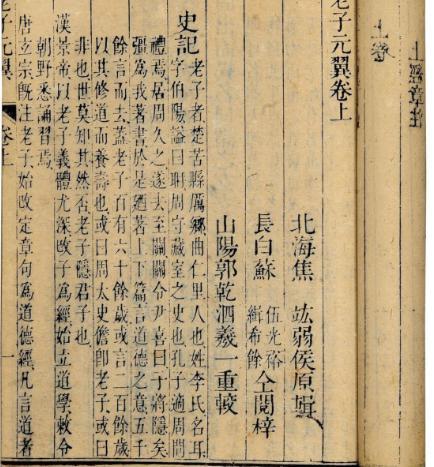 上卷
老子元翼卷上
北海焦 竑弱侯原輯
長白蘇 伍光裕 緝希餘 仝閱梓
山陽郭乾泗羲一重較
史記 老子者楚苦縣厲鄉曲仁里人也姓李氏名耳
字伯陽謚曰聃周守藏室之史也孔子適周問
禮焉居周久之遂去至關關令尹喜曰子將隱矣
彊為我著書於是迺著上下篇言道德之意五千
餘言而去蓋老子百有六十餘歲或言二百餘歲
以其修道而養壽也或曰周太史儋即老子或曰
非也世莫知其然否老子隱君子也
漢景帝以老子義體尤深改子為經始立道學敕令
朝野悉諷習焉
唐玄宗既注老子始改定章句為道德經凡言道者
老子元翼 卷上 一